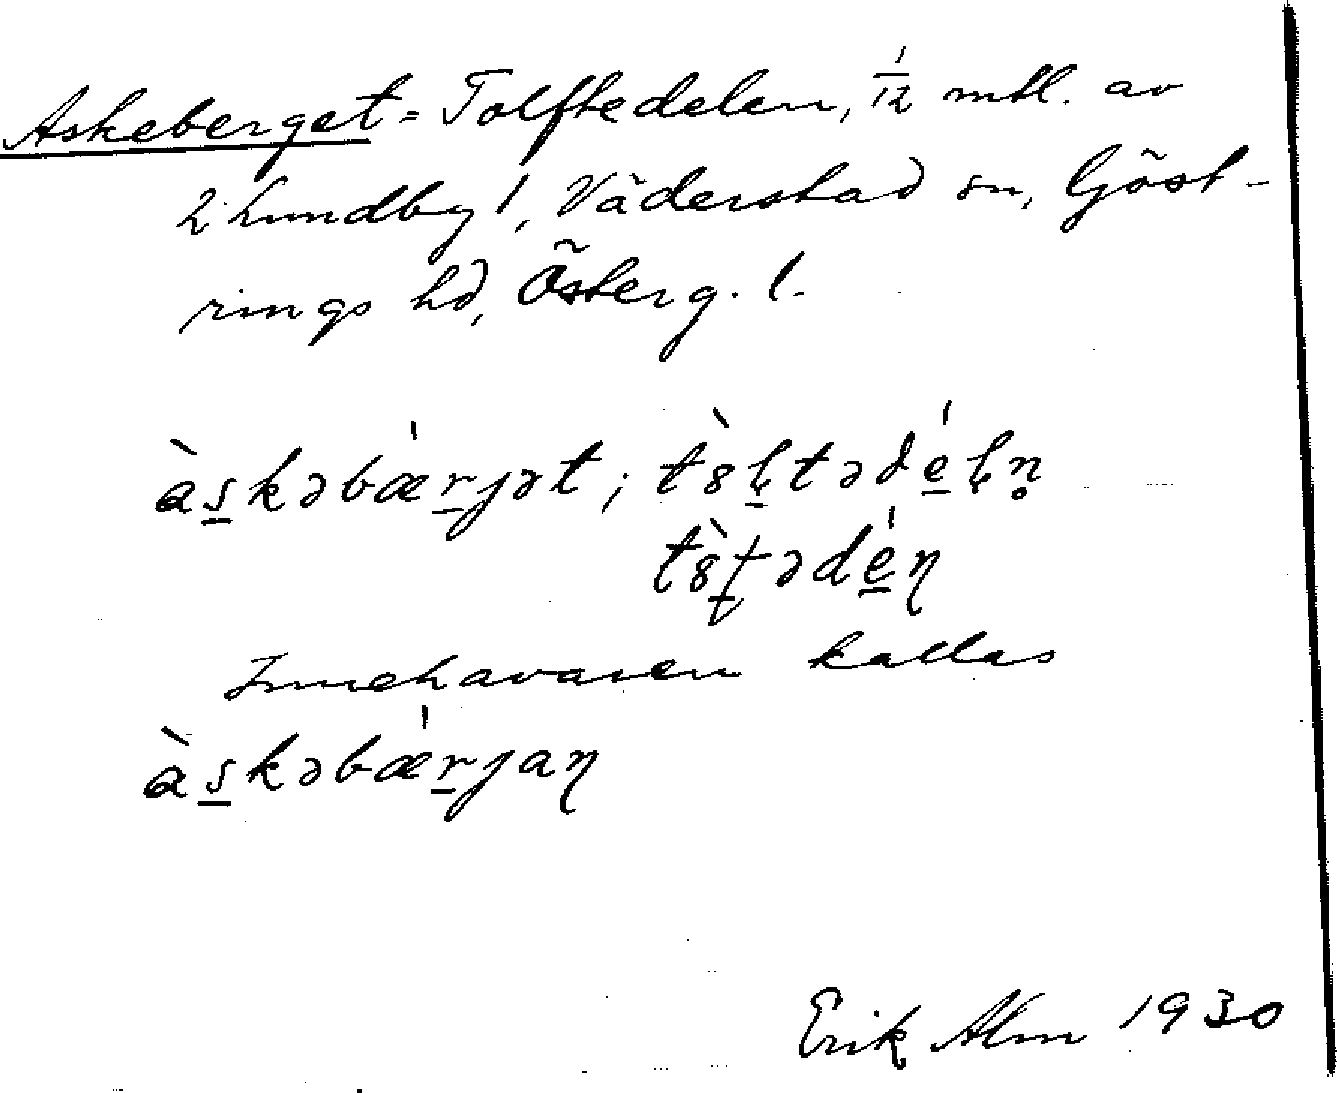 Askeberget = Tolftedelen, 1/12 mtl. av
2 Lundby 1, Väderstad sn, Göst-
rings hd, Österg. l.
às̠kəbæ̍r̠jət; tò̀ḷtədé̠ḷn̥
Innehavaren kallas
às̠kəbæ̍r̠jaƞ
Erik Alm 1930